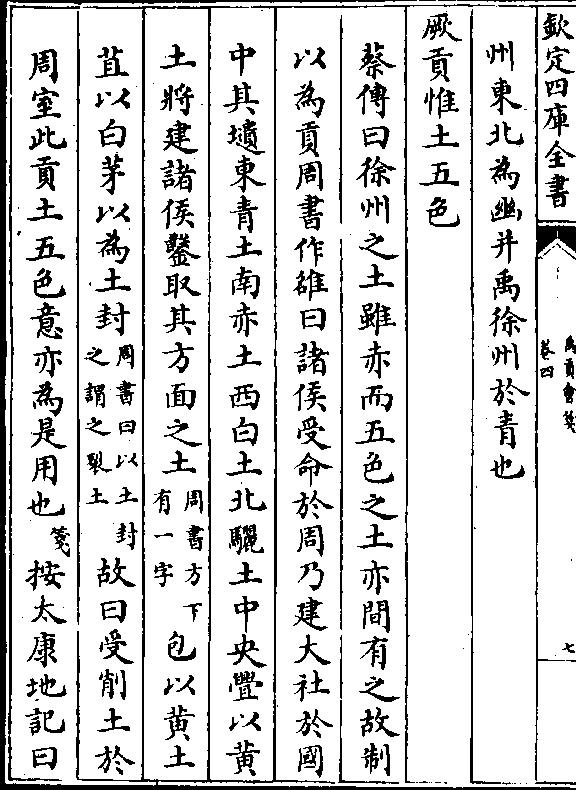 欽定四庫全書
禹貢會箋
卷四
七
州東北為幽并禹徐州於青也
厥貢惟土五色
蔡傳曰徐州之土雖赤而五色之土亦間有之故制
以為貢周書作雒曰諸侯受命於周乃建大社於國
中其壝東青土南赤土西白土北驪土中央疊以黄
土將建諸侯鑿取其方面之土周書方下有一字包以黄土
苴以白茅以為土封周書曰以土封之謂之裂土故曰受削土於
周室此貢土五色意亦為是用也箋按太康地記曰